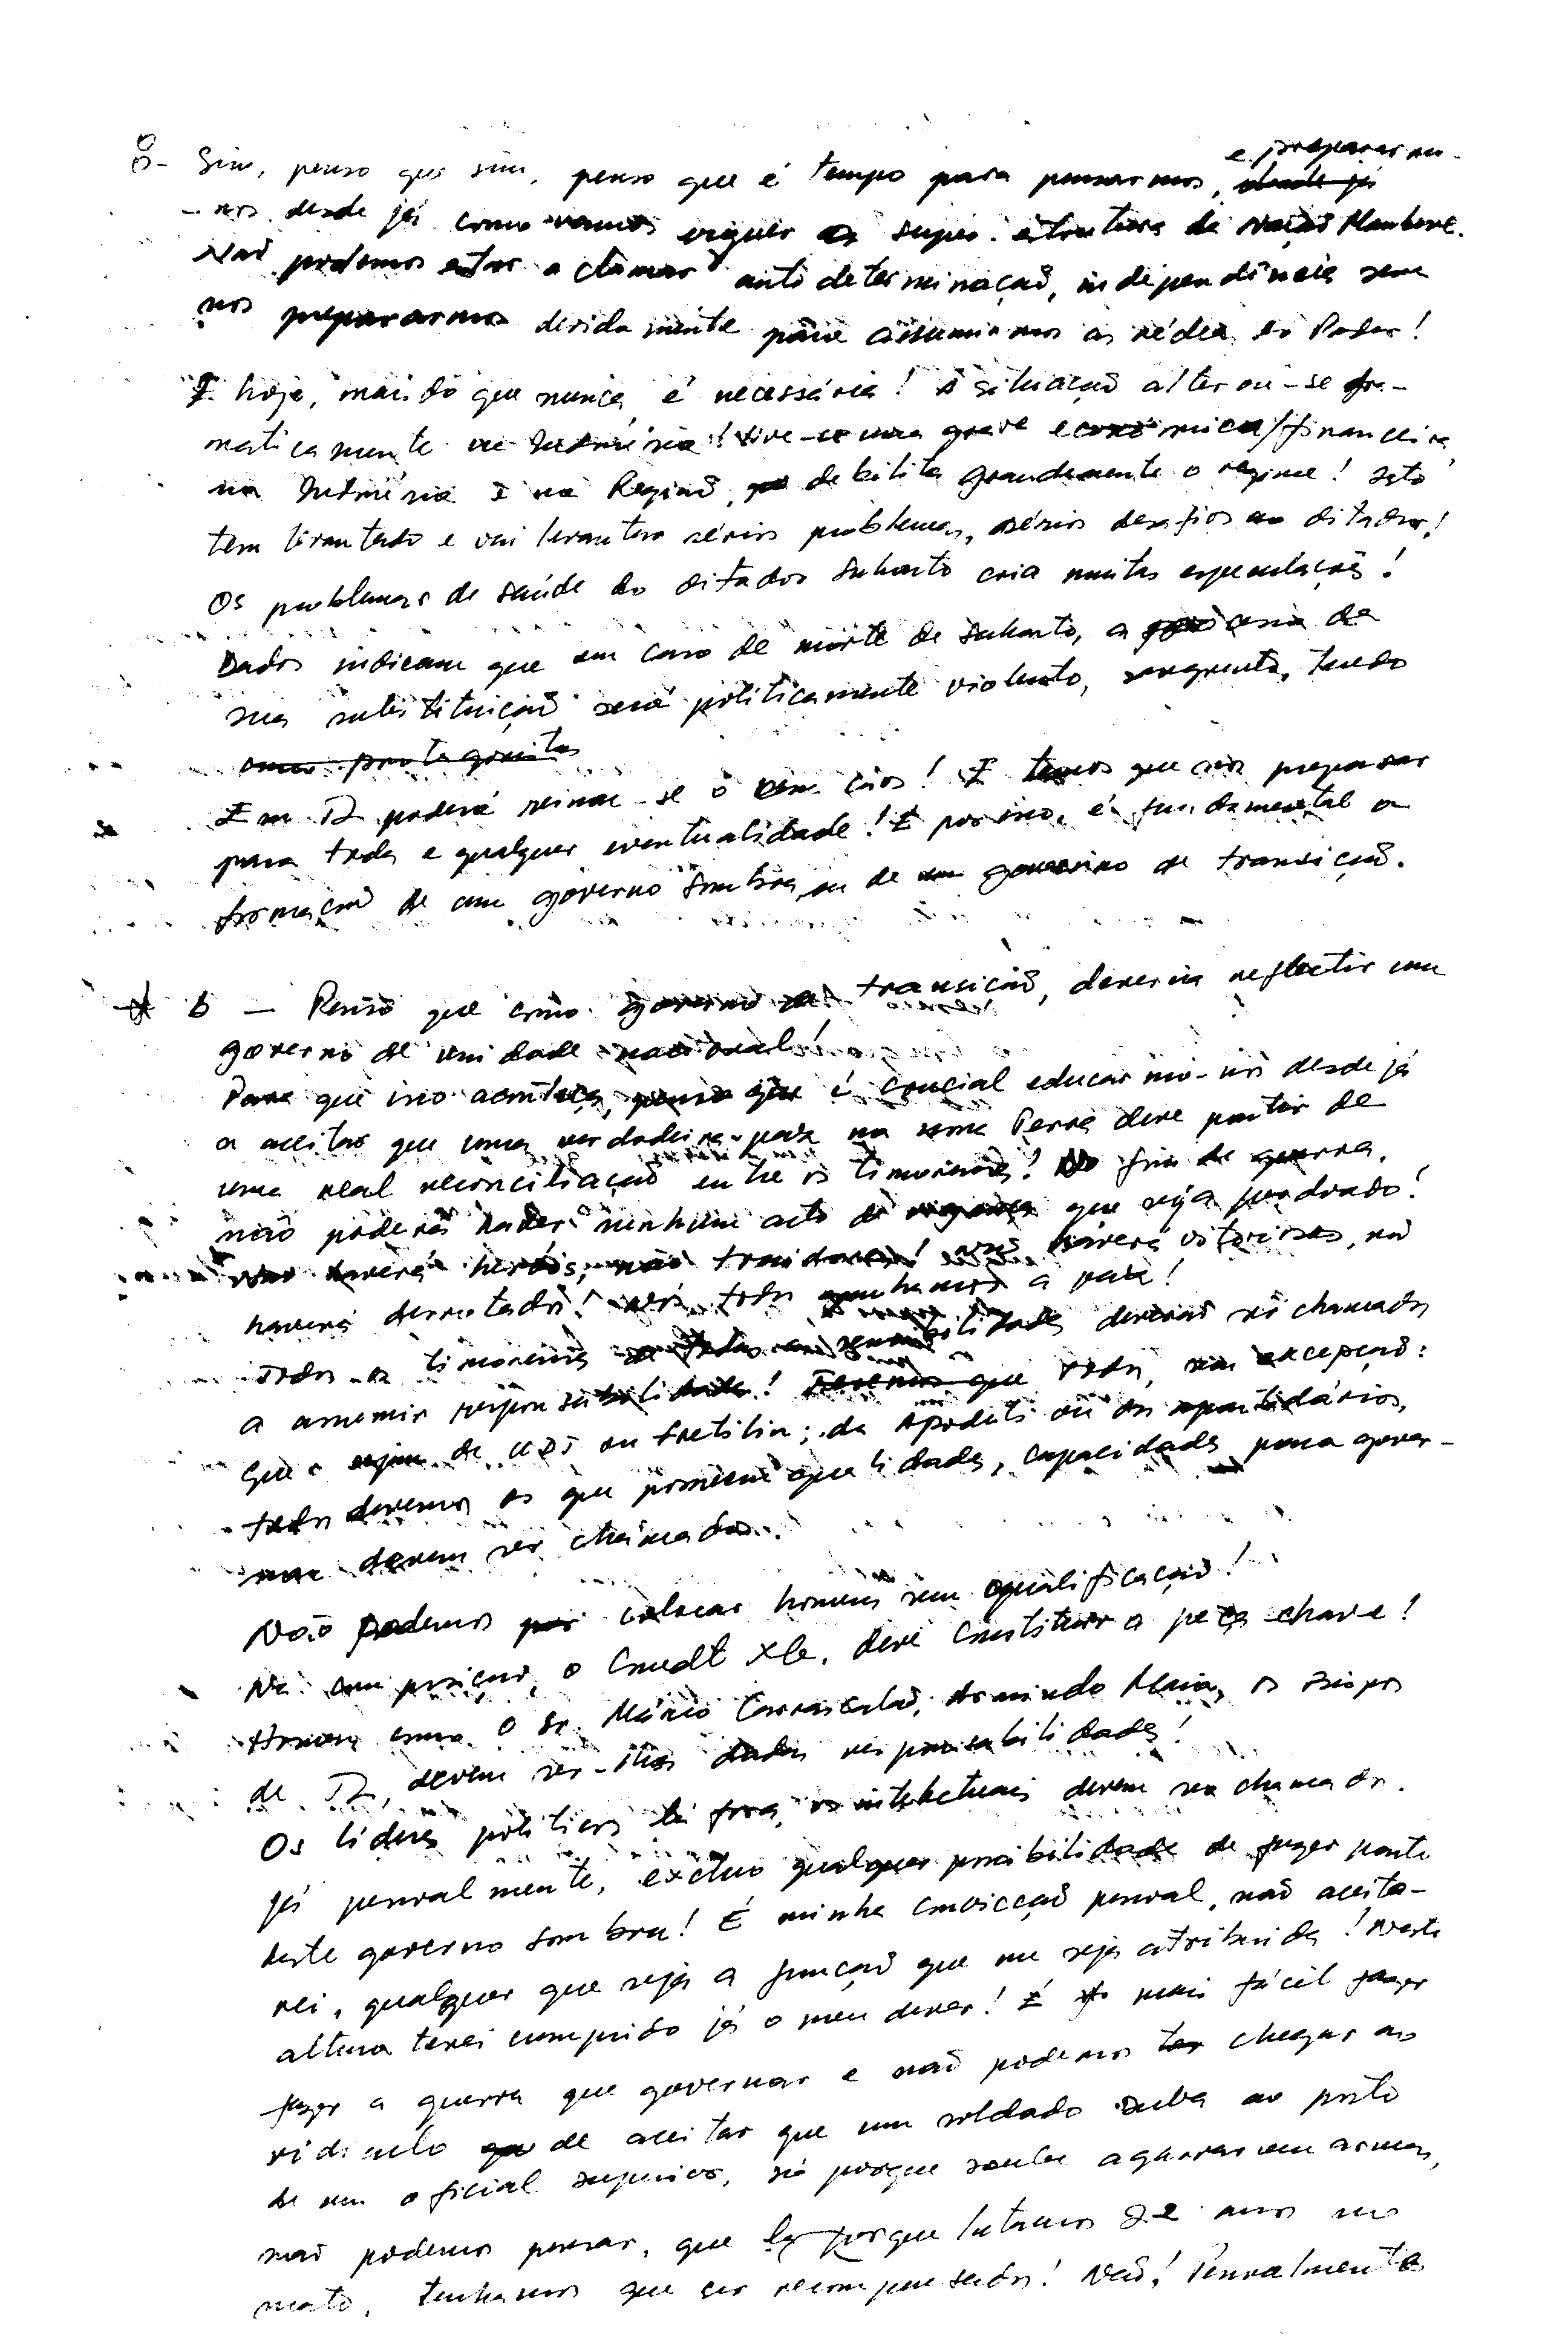 8- Sim, penso que sim, penso que é tempo para pensarmos, e prepararmo-
-nos desde já como vamos erguer as super-estrutura da Nação Maubere.
Não podemos estar a clamar autodeterminação, independência sem
nos prepararmos devidamente para assumirmos as rédeas do Poder!
E hoje, mais do que nunca, é necessária! A situação alterou-se dra-
maticamente na Indonésia! Vive-se uma grave económica/financeira
na Indonésia e na Região, debilita grandemente o regime! Isto
tem levantado e vai levantar sérios problemas, sérios desafios ao ditador!
Os problemas de saúde do ditador Suharto cria muitas especulações!
Dados indicam que em caso de morte de Suharto, a de
sua substituição será politicamente violento, sangrento, tendo
como protagonistas
Em TL poderá reinar-se o caos! E temos que nos preparar
para toda e qualquer eventualidade! E por isso, é fundamental a
formação de um governo sombra, ou de um governo de transição.
b - Penso que como governo de transição, deveria reflectir um
governo de unidade nacional!
Para que isso aconteça, penso que é crucial educarmo-nos desde já
a aceitar que uma verdadeira paz na nossa Terra deve partir de
uma real reconciliação entre os timorenses! No fim de guerra,
não poderá haver nenhum acto de vingança que seja perdoado!
Não haverá heróis, não traidores! Não haverá vitoriosos, não
haverá derrotados! Nós todos ganhamos a paz!
Todos os timorenses de todas as sensibilidades deverão ser chamados
a assumir responsabilidades! que todos, sem excepção:
que sejam de UDT ou Fretilin; da Apodeti ou os apartidários,
todos devemos os que possuem qualidades, capacidades para gover-
nar devem ser chamados.
Não podemos por colocar homens sem qualificação!
Na composição, o Cmdt XG. deve constituir a peça chave!
Homens como o Dr. Mário Carrascalão, Armindo Maia, os Bispos
de TL, devem ser-lhes dadas responsabilidades!
Os líderes políticos lá fora, os intelectuais devem ser chamados.
Já pessoalmente, excluo qualquer possibilidade de fazer parte
deste governo sombra! É minha convicção pessoal, não aceita-
rei, qualquer que seja a função que me seja atribuída! Nesta
altura terei cumprido já o meu dever! É mais fácil fazer
fazer a guerra que governar e não podemos ter chegar ao
ridículo de aceitar que um soldado suba ao posto
de um oficial superior, só porque soube agarrar em armas,
não podemos pensar, que porque lutamos 22 anos no
mato, tenhamos que ser recompensados! Não! Pessoalmente